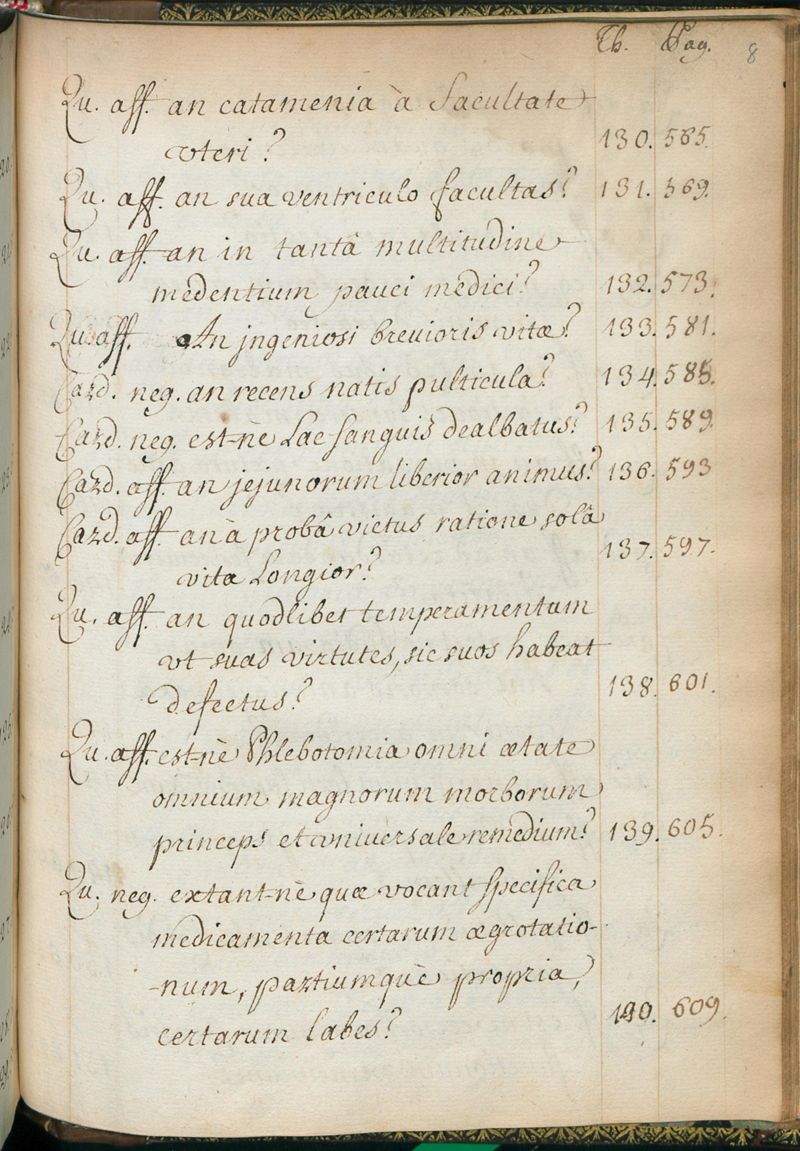 Th. Pag. 8
Qu. aff. an catamenia à facultate
vteri? 130. 565.
Qu. aff. an sua ventriculo facultas? 131. 569.
Qu. aff. an in tantâ multitudine
medentium pauci medici? 132. 573.
Qu. aff. An jngeniosi breuioris vitæ? 133. 581.
Card. neg. an recens natis pulticula? 134. 585.
Card. neg. est-nè Lac sanguis dealbatus? 135. 589.
Card. aff. an jejunorum liberior animus? 136. 593
Card. aff. an à probâ victus ratione solâ
vita Longior? 137. 597.
Qu. aff. an quodlibet temperamentum
vt suas virtutes, sic suos habeat
defectus? 138. 601.
Qu. aff. est-nè Phlebotomia omni ætate
omnium magnorum morborum
princeps et vniuersale remedium? 139. 605.
Qu. neg. extant-nè quæ vocant specifica
medicamenta certarum ægrotatio-
-num, partiumquè propria,
certarum labes? 140. 609.